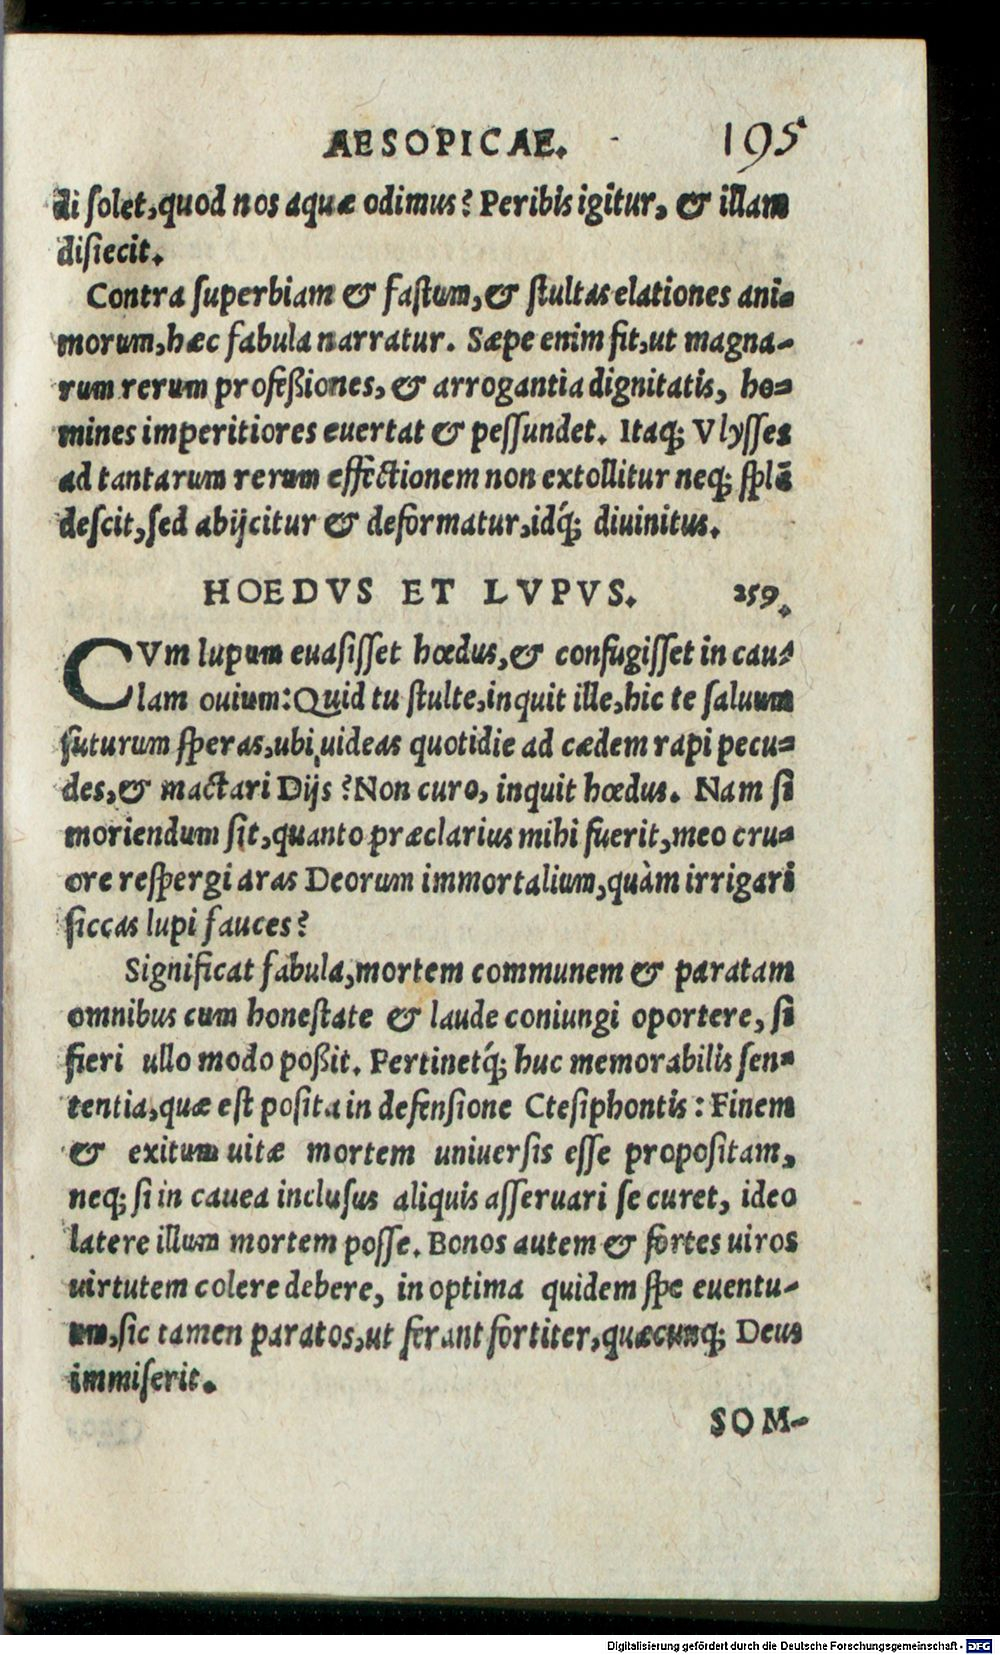 AESOPICAE. 195
di solet, quod nos aquæ odimus? Peribis igitur, & illam
disiecit.
Contra superbiam & fastum, & stultas elationes ani-
morum, hæc fabula narratur. Sæpe enim fit, ut magna-
rum rerum profeßiones, & arrogantia dignitatis, ho-
mines imperitiores euertat & pessundet. Itaq; Vlysses
ad tantarum rerum effectionem non extollitur neq; splē
descit, sed abijcitur & deformatur, idq́; diuinitus.
HOEDVS ET LVPVS. 259.
CVm lupum euasisset hœdus, & confugisset in cau-
lam ouium: Quid tu stulte, inquit ille, hic te saluum
futurum speras, ubi uideas quotidie ad cædem rapi pecu-
des, & mactari Dijs? Non curo, inquit hœdus. Nam si
moriendum sit, quanto præclarius mihi fuerit, meo cru-
ore respergi aras Deorum immortalium, quàm irrigari
siccas lupi fauces?
Significat fabula, mortem communem & paratam
omnibus cum honestate & laude coniungi oportere, si
fieri ullo modo poßit. Pertinetq́; huc memorabilis sen-
tentia, quæ est posita in defensione Ctesiphontis: Finem
& exitum uitæ mortem uniuersis esse propositam,
neq; si in cauea inclusus aliquis asseruari se curet, ideo
latere illum mortem posse. Bonos autem & fortes uiros
uirtutem colere debere, in optima quidem spe euentu-
um, sic tamen paratos, ut ferant fortiter, quæcunq; Deus
immiserit.
SOM-
Digitalisierung gefördert durch die Deutsche Forschungsgemeinschaft - DFG